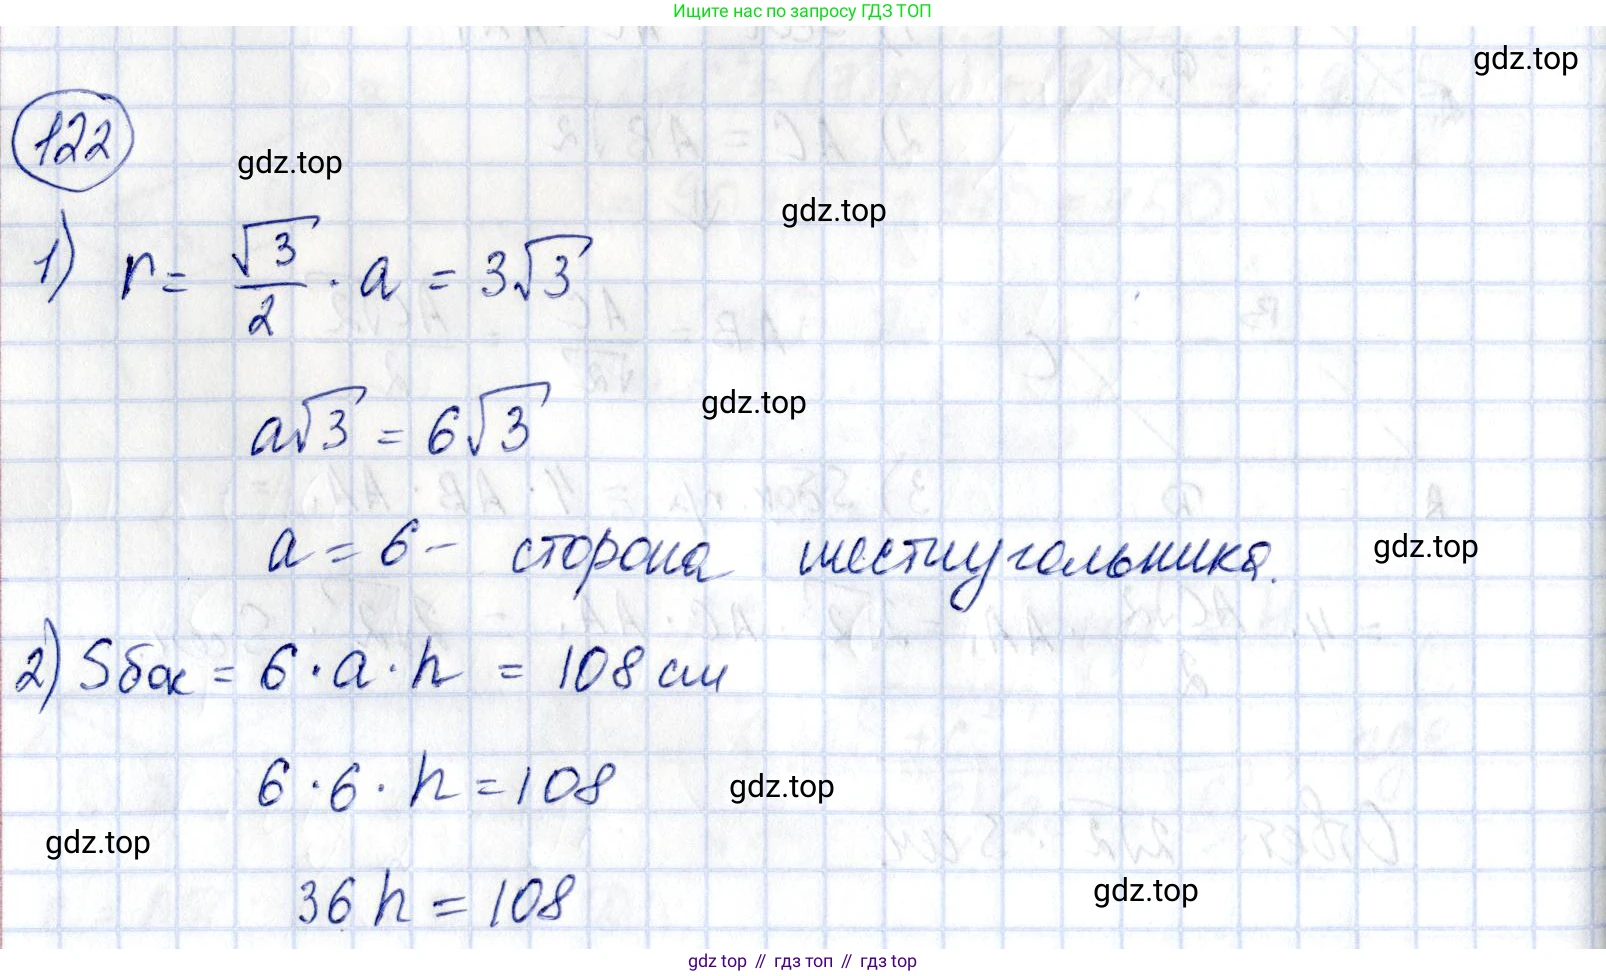 Ищите нас по запросу ГДЗ ТОП
gdz.top
122
gdz.top
gdz.top
1) r = √3/2 · a = 3√3
a√3 = 6√3
gdz.top
a = 6 – сторона шестиугольника.
gdz.top
2) Sбок = 6 · a · h = 108 см
6 · 6 · h = 108
gdz.top
gdz.top
36 h = 108
gdz.top
gdz top // гдз топ // гдз top